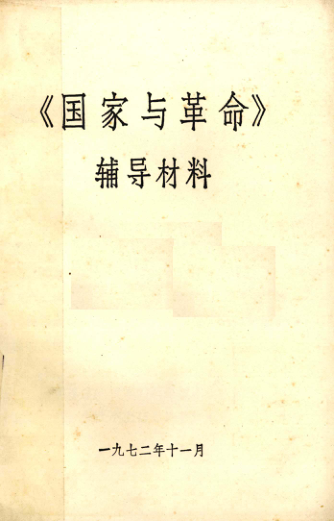 《国家与革命》
辅导材料
一九七二年十一月